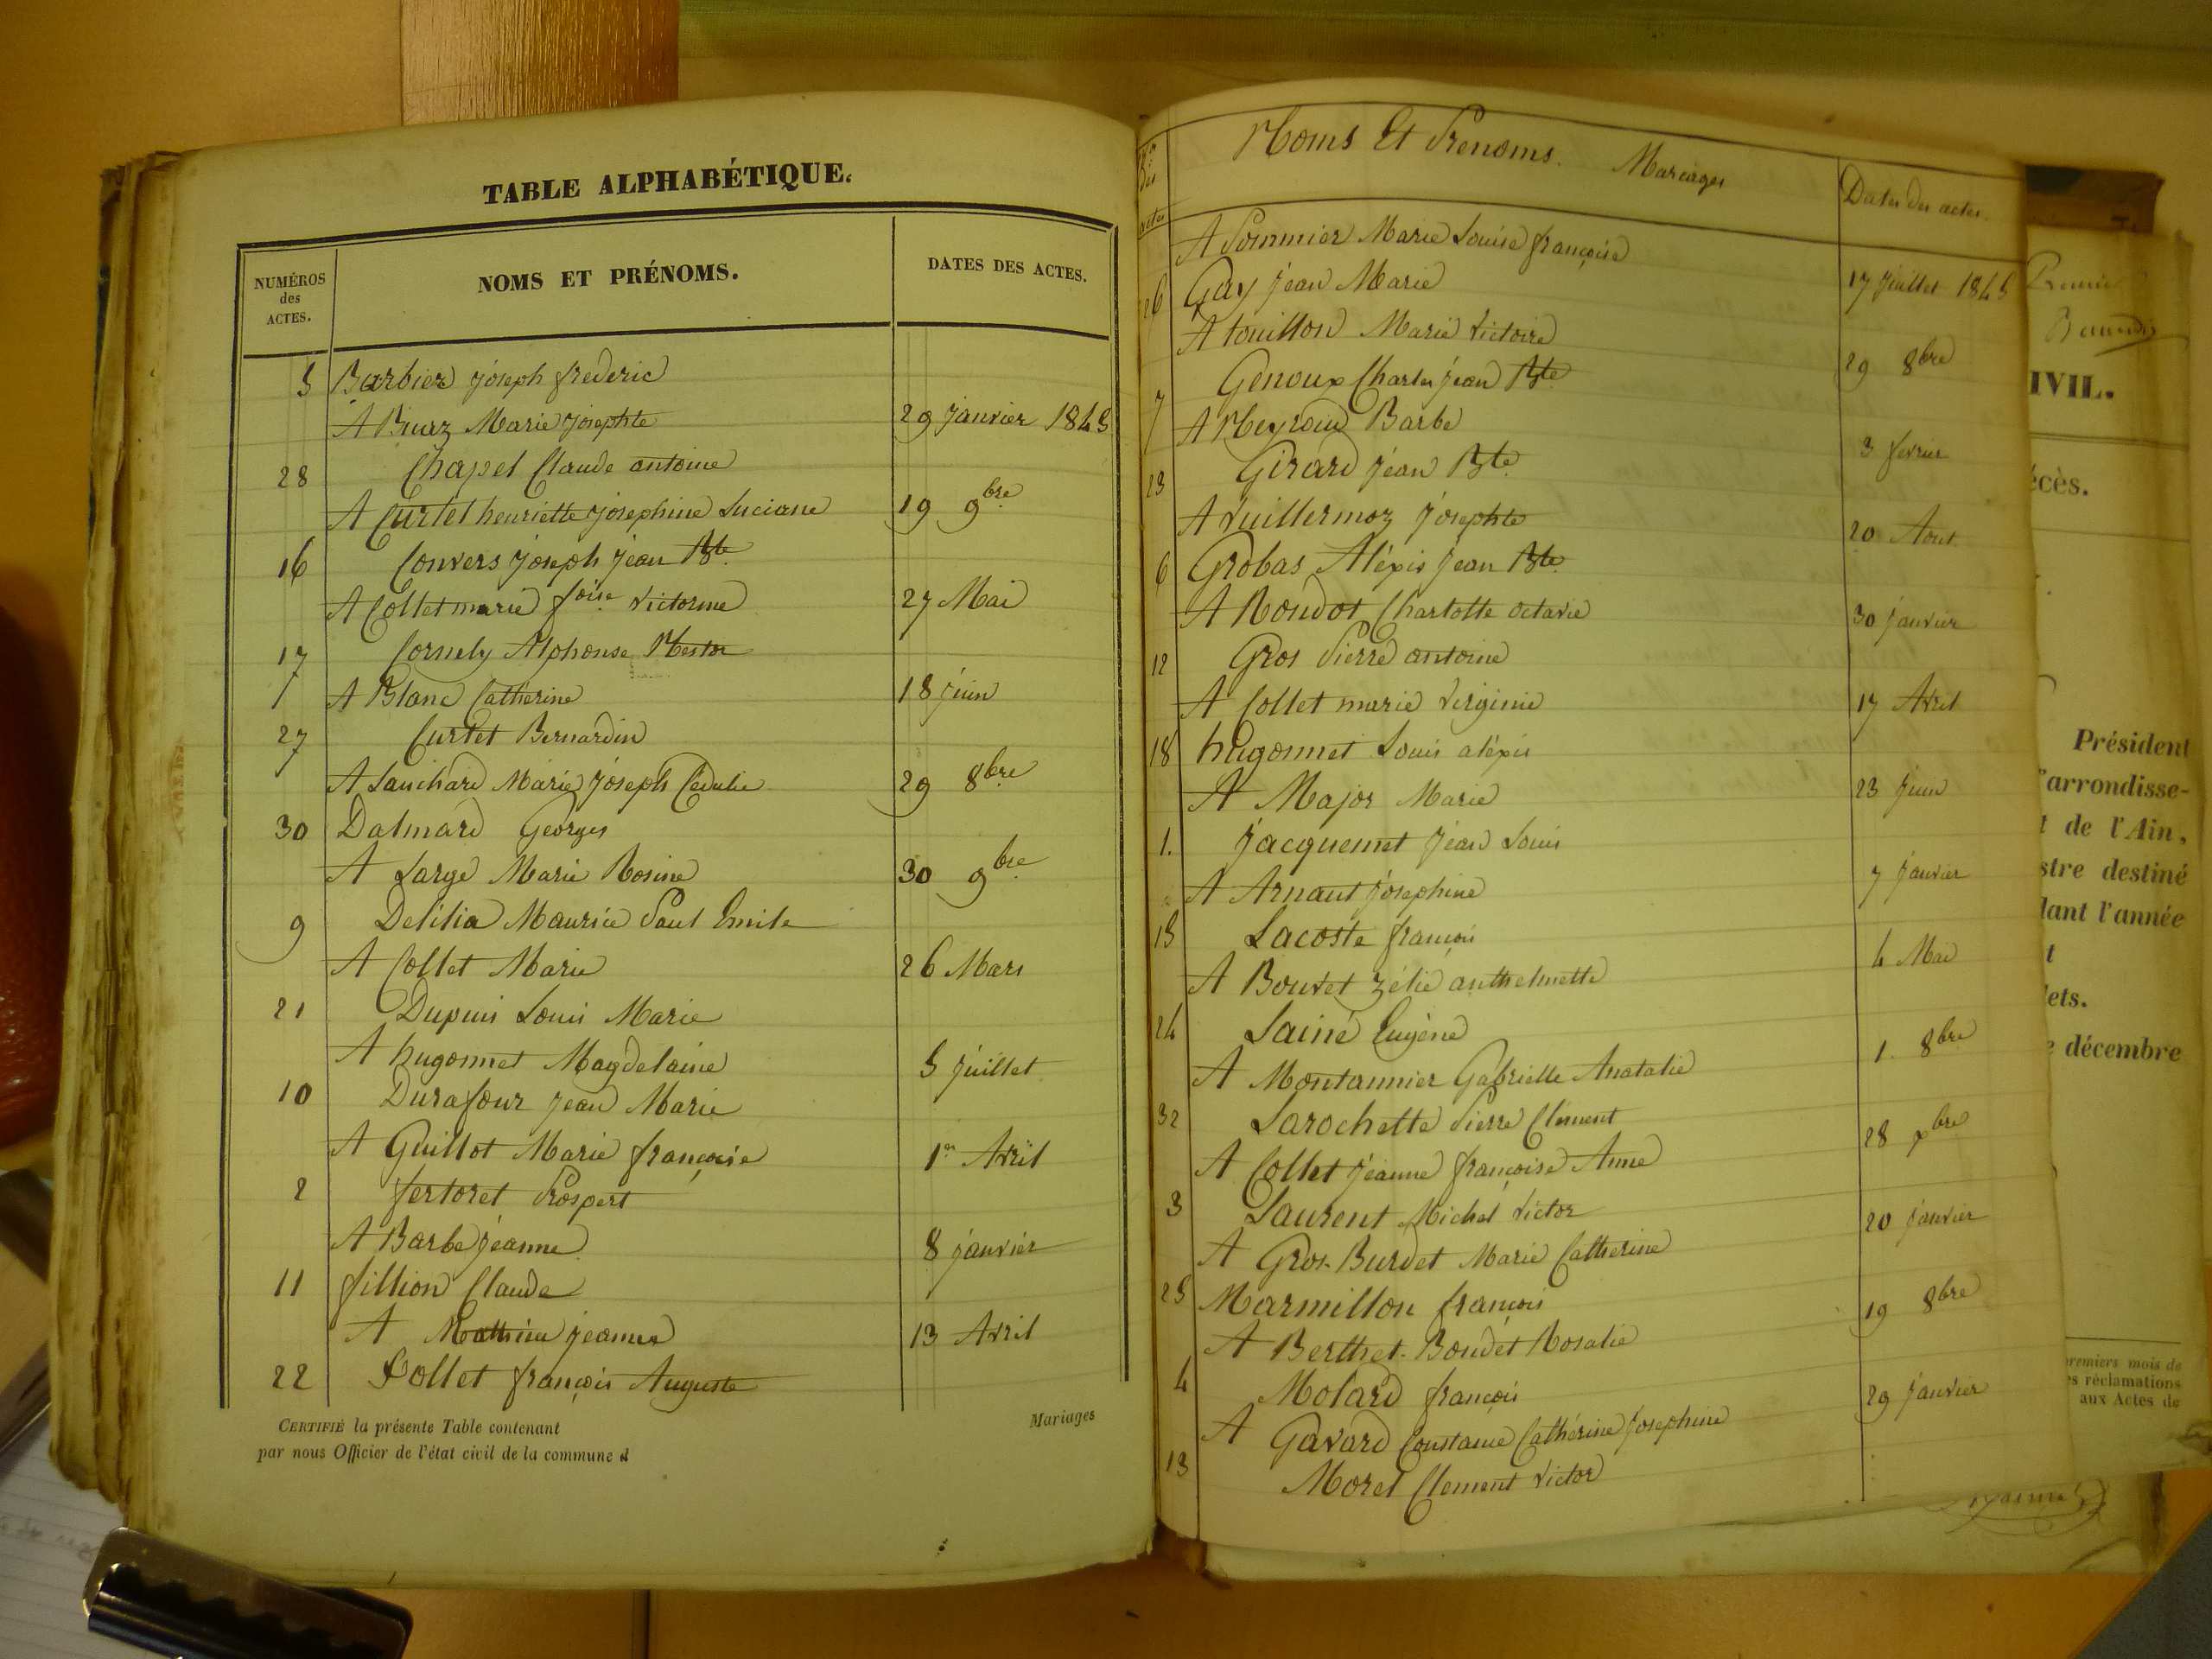 TABLE ALPHABÉTIQUE.
NUMÉROS des ACTES.
NOMS ET PRÉNOMS.
DATES DES ACTES.
5 Barbier joseph frederic
A Buaz Marie josephte 29 janvier 1845
28 Chapel Claude antoine
A Curtet henriette josephine Luciane 19 9bre
16 Convers joseph jean Bte
A Collet marie foise victorine 27 Mai
17 Cornely Alphonse Nestor
A Blanc Catherine 18 juin
27 Curtet Bernardin
A Lanchard Marie joseph Cedulie 29 8bre
30 Dalmard Georges
A Large Marie Rosine 30 9bre
9 Delilia Maurice Paul Emile
A Collet Marie 26 Mars
21 Dupuis Louis Marie
A hugonnet Magdelaine 5 juillet
10 Durafour jean Marie
A Guillot Marie françoise 1er Avril
2 fertoret Prospert
A Barbe jeanne 8 janvier
11 fillion Claude
A Mathieu jeanne 13 Avril
22 Follet françois Auguste
CERTIFIÉ la présente Table contenant
Mariages
par nous Officier de l'état civil de la commune d
Nos des actes
Noms Et Prenoms. Mariages
Dates des actes.
A Pommier Marie Louise françoise
26 Gay jean Marie 17 juillet 1845
A touillon Marie victoire
Genoux Charles jean Bte 29 8bre
7 A Meyroud Barbe
Girard jean Bte 3 fevrier
23
A vuillermoz josephte
20 Aout
6 Grobas Aléxis jean Bte
A Rondot Charlotte octavie 30 janvier
12 Gros Pierre antoine
A Collet marie virginie 17 Avril
18 hugonnet Louis aléxis
A Major Marie 23 juin
1. jacquemet jean Louis
A Arnaut josephine 7 janvier
15 Lacoste françois
A Bouvet zélie anthelmette 4 Mai
24 Lainé Eugène
A Montannier Gabrielle Anatalie 1. 8bre
32 Larochette Pierre Clement
A Collet jeanne françoise Anne 28 xbre
3 Laurent Michel victor
A Gros-Burdet Marie Catherine 20 janvier
25 Marmillon françois
A Berthet-Boudet Rosalie 19 8bre
4 Molard françois
A Gavard Constance Cathérine josephine 29 janvier
13 Morel Clement victor
IVIL.
écès.
Président
'arrondisse-
t de l'Ain,
stre destiné
lant l'année
t
lets.
e décembre
premiers mois de
es réclamations
aux Actes de